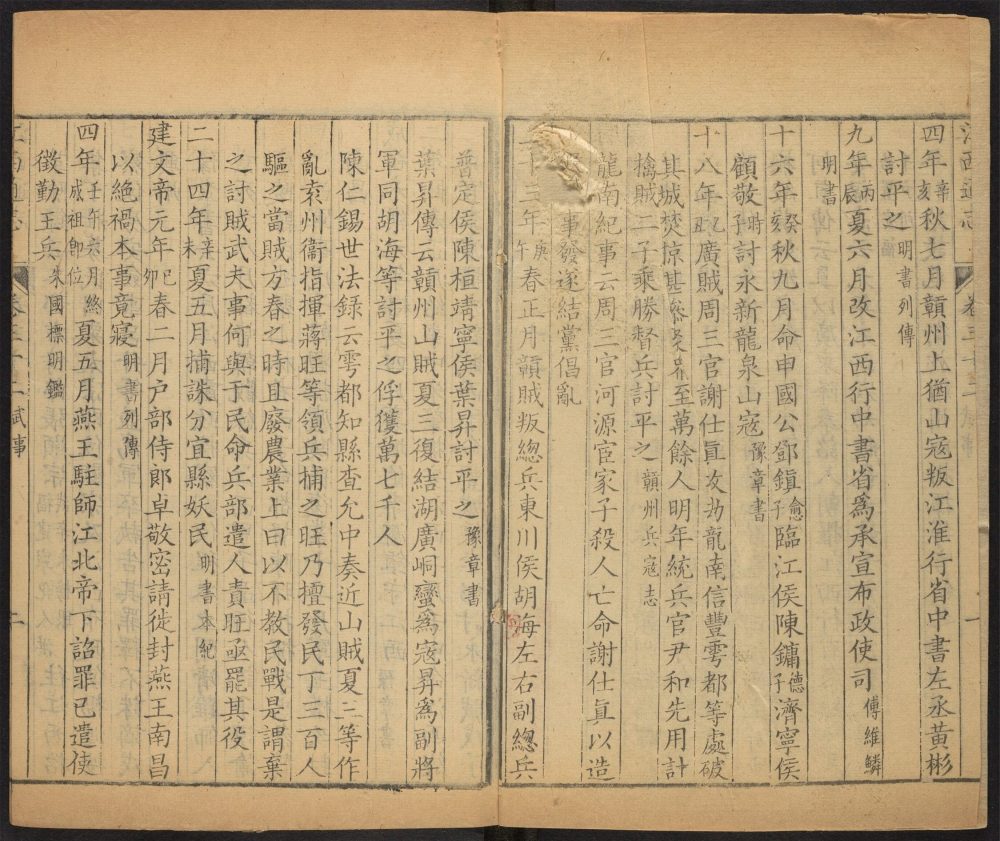 四年辛亥秋七月贛州上猶山寇叛江淮行省中書左丞黃彬
討平之明書列傳
九年丙辰夏六月改江西行中書省爲承宣布政使司傅維鱗
明書
十六年癸亥秋九月命申國公鄧鎮愈子臨江侯陳鏞德子濟寧侯
顧敬時子討永新龍泉山寇豫章書
十八年乙丑廣賊周三官謝仕眞攻刼龍南信豐雩都等處破
其城焚掠甚衆至萬餘人明年統兵官尹和先用計
擒賊二子乘勝督兵討平之贛州兵寇志
龍南紀事云周三官河源宦家子殺人亡命謝仕眞以造
事發遂結黨倡亂
二十三年庚午春正月贛賊叛總兵東川侯胡海左右副總兵
普定侯陳桓靖寧侯葉昇討平之豫章書
葉昇傳云贛州山賊夏三復結湖廣峒蠻爲寇昇爲副將
軍同胡海等討平之俘獲萬七千人
陳仁錫世法録云雩都知縣查允中奏近山賊夏三等作
亂袁州衞指揮蔣旺等領兵捕之旺乃擅發民丁三百人
驅之當賊方春之時且廢農業上曰以不教民戰是謂棄
之討賊武夫事何與于民命兵部遣人責旺亟罷其役
二十四年辛未夏五月捕誅分宜縣妖民明書本紀
建文帝元年己卯春二月户部侍郎卓敬密請徙封燕王南昌
以絕禍本事竟寢明書列傳
四年壬午六月終成祖即位夏五月燕王駐師江北帝下詔罪已遣使
徵勤王兵朱國標明鑑
江西通志 卷三十二 武事 二